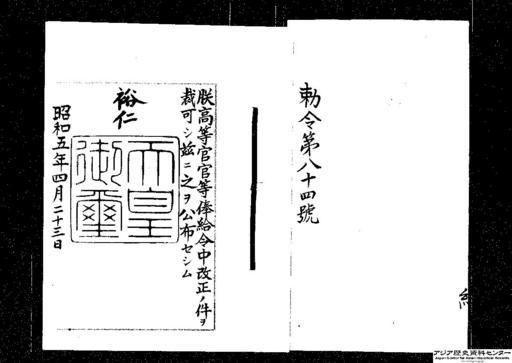 勅令第八十四號
朕高等官官等俸給令中改正ノ件ヲ
裁可シ茲ニ之ヲ公布セシム
裕仁
天皇
御璽
昭和五年四月二十三日
アジア歴史資料センター
Japan Center for Asian Historical Records